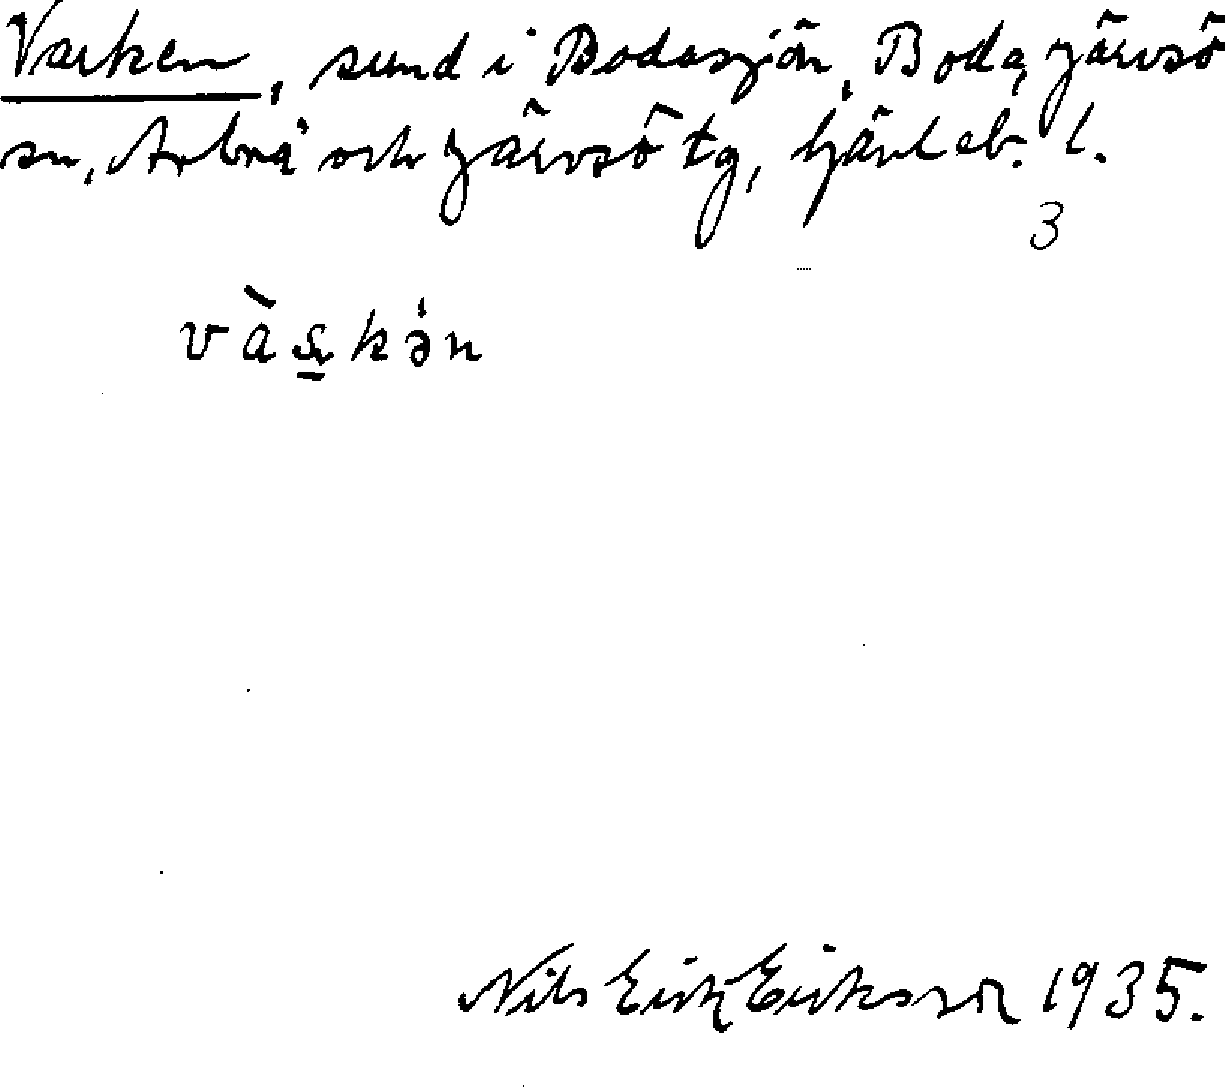 Varken, sund i Bodasjön, Boda, Järvsö
sn, Arbrå och Järvsö tg, Gävleb. l.
3
Nils Erik Eriksson 1935.